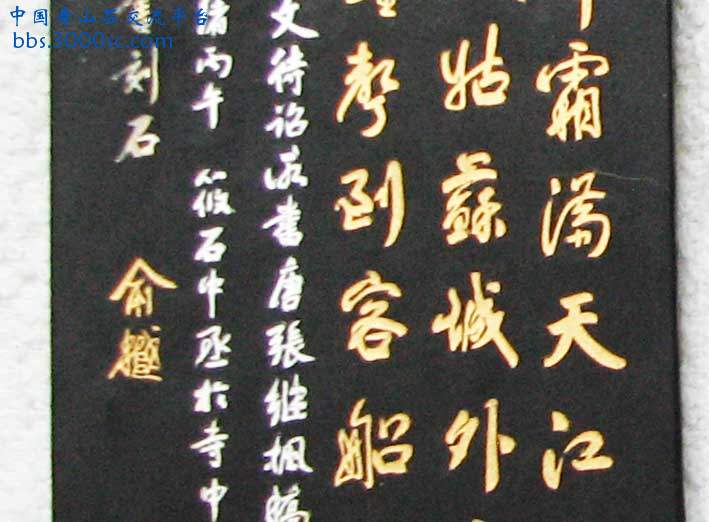 中国青山石交流平台
bbs.3000sc.com
霜满天江
姑蘇城外
聲到客船
文待詔旧書唐張継楓橋
緒丙午 筱石中丞於寺中
刻石
俞樾